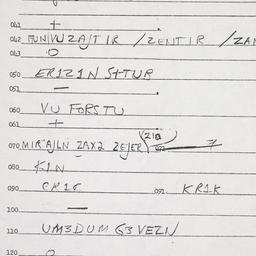 041 +
042 FUN/VUZAJTIR /ZENTIR /ZAN
043 O
050 ER1Z1N S+TUR
051 —
060 VU FORSTU
061 +
070 MIR'AJLN ZAX2 ZEJER (Z1A)
080 K1N
090 CR1G 091 KR1K
100 —
110 UM3DUM G3VEZN
120 O